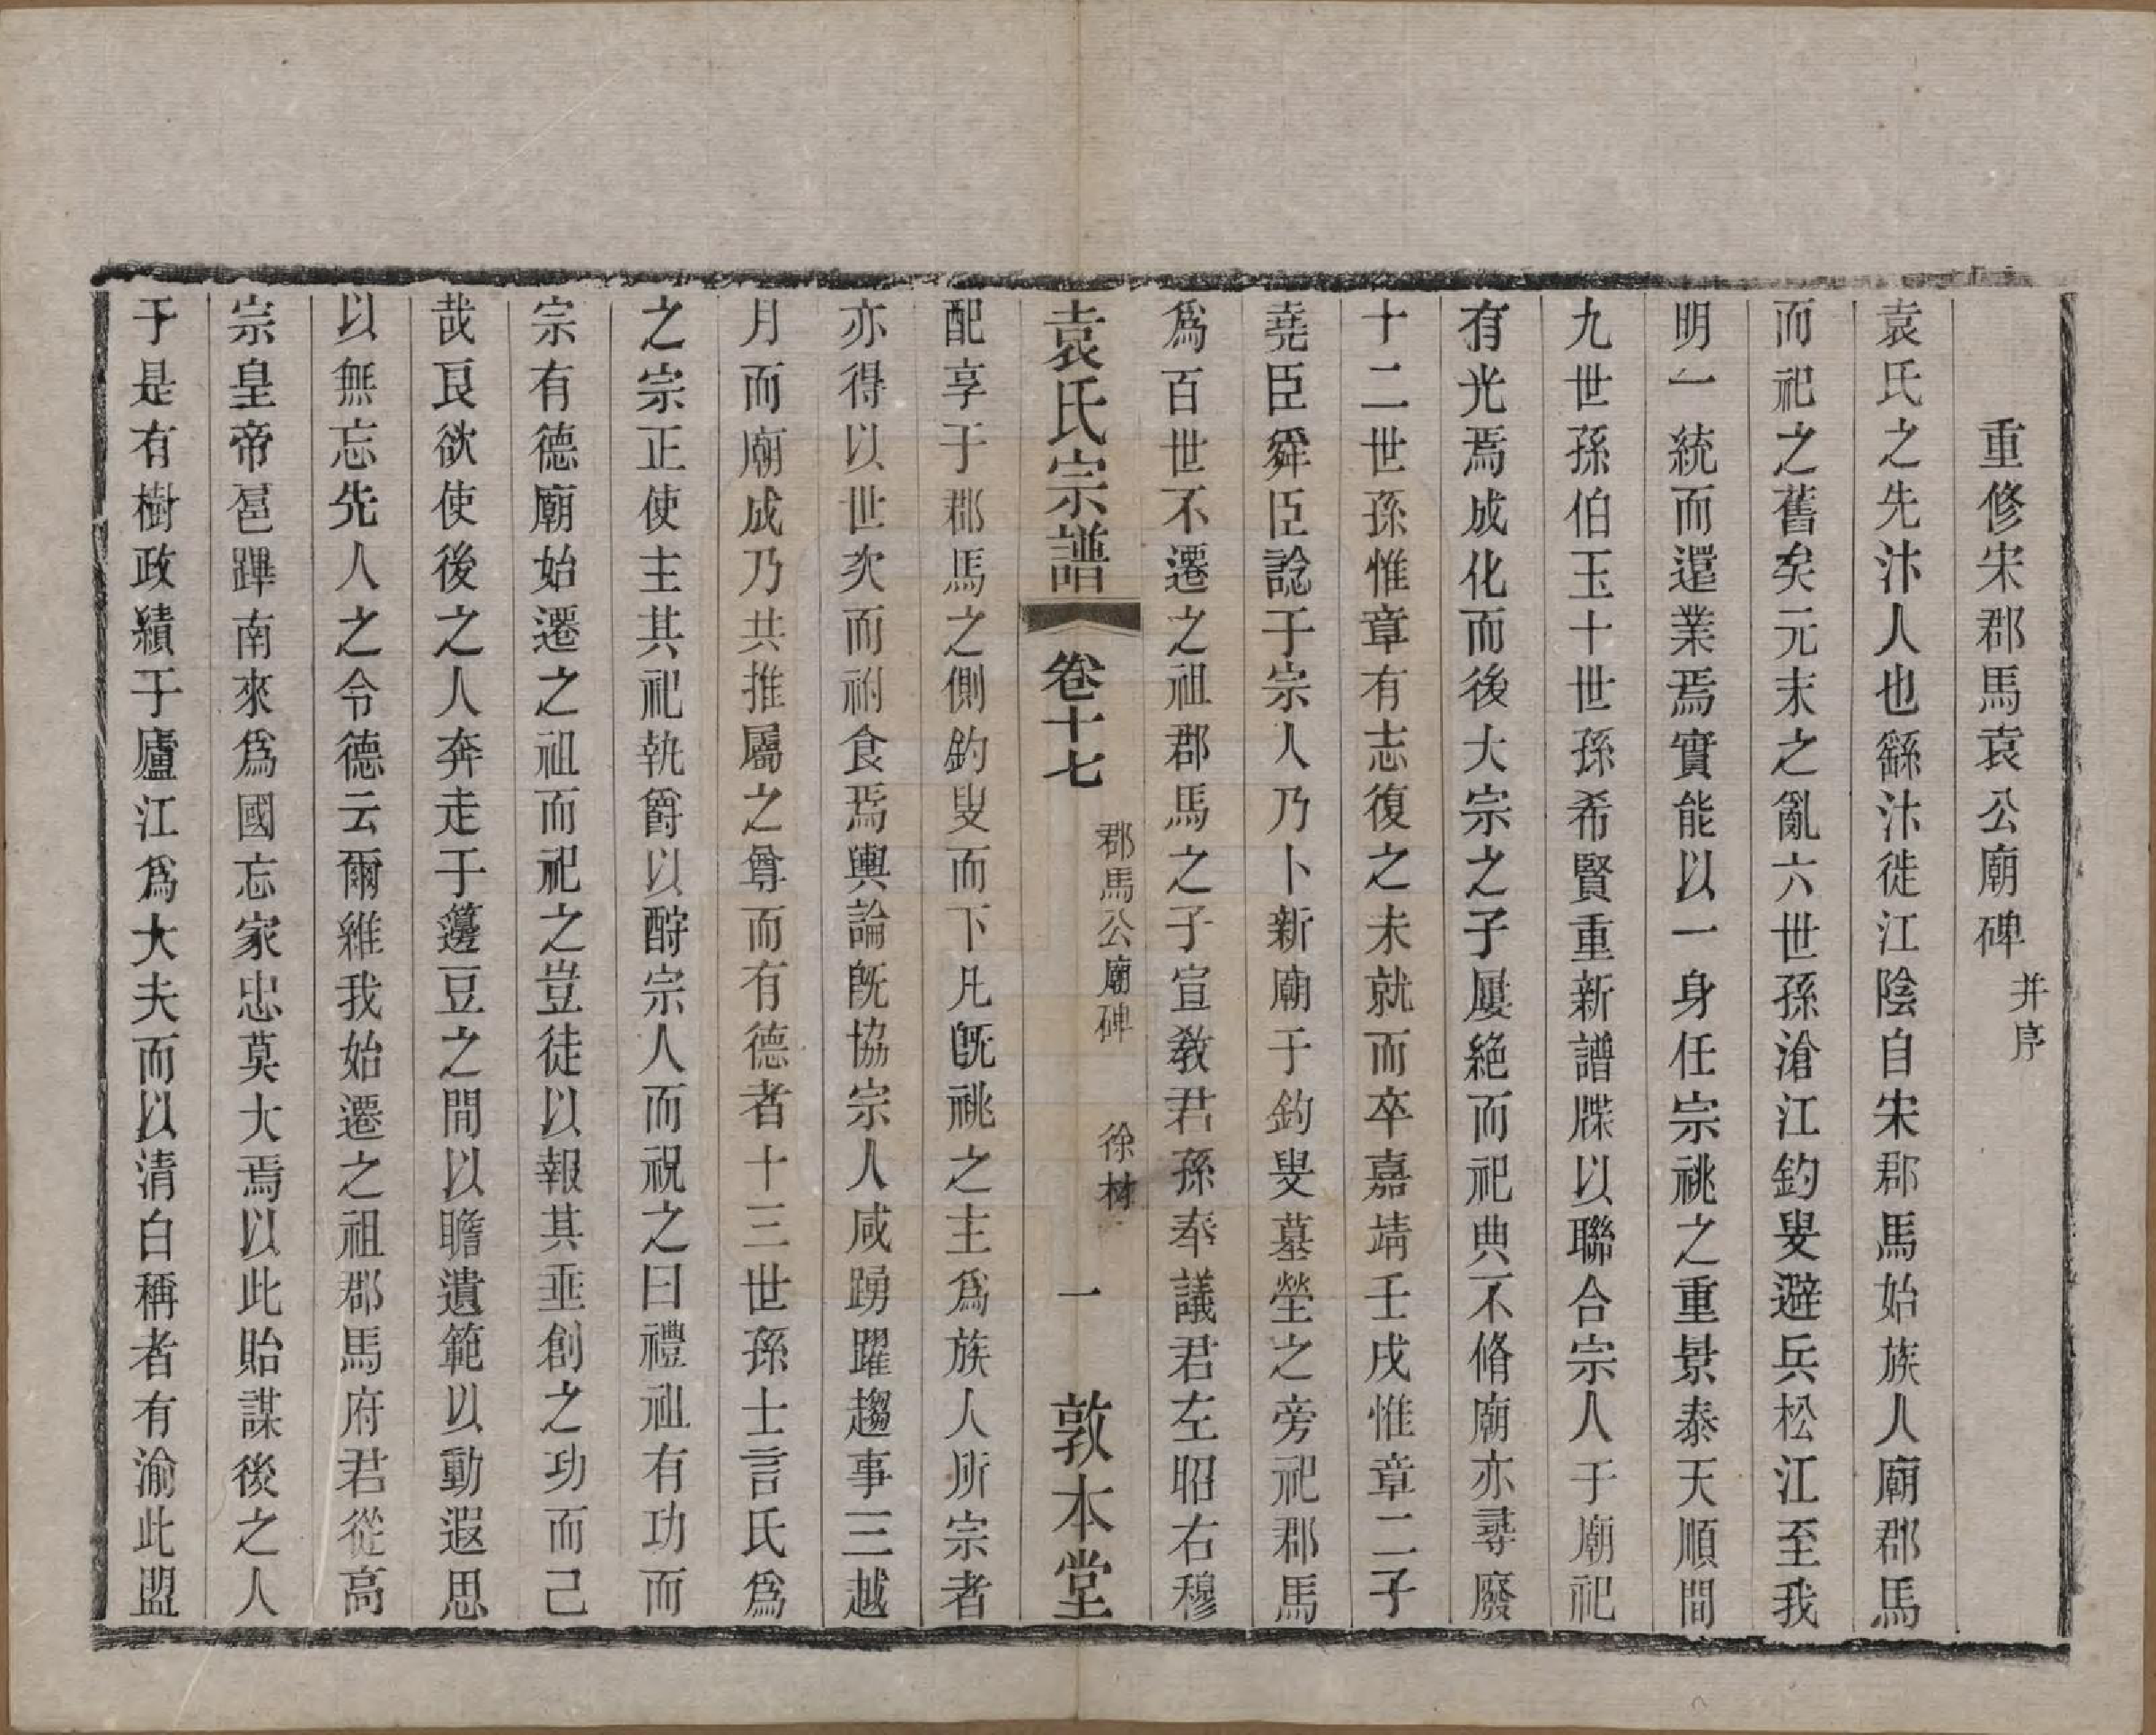 重修宋郡馬袁公廟碑并序
袁氏之先汴人也繇汴徙江陰自宋郡馬始族人廟郡馬
而祀之舊矣元末之亂六世孫滄江釣叟避兵松江至我
明一統而還業焉實能以一身任宗祧之重景泰天順間
九世孫伯玉十世孫希賢重新譜牒以聯合宗人于廟祀
有光焉成化而後大宗之子屢絶而祀典不脩廟亦尋廢
十二世孫惟章有志復之未就而卒嘉靖壬戌惟章二子
堯臣舜臣諗于宗人乃卜新廟于釣叟墓塋之旁祀郡馬
爲百世不遷之祖郡馬之子宣敎君孫奉議君左昭右穆
袁氏宗譜 卷十七 郡馬公廟碑 徐材 一 敦本堂
配享于郡馬之側釣叟而下凡旣祧之主爲族人所宗者
亦得以世次而祔食焉輿論旣協宗人咸踴躍趨事三越
月而廟成乃共推屬之尊而有德者十三世孫士言氏爲
之宗正使主其祀執爵以酹宗人而祝之曰禮祖有功而
宗有德廟始遷之祖而祀之豈徒以報其垂創之功而己
哉良欲使後之人奔走于籩豆之間以瞻遺範以動遐思
以無忘先人之令德云爾維我始遷之祖郡馬府君從高
宗皇帝扈蹕南來爲國忘家忠莫大焉以此貽謀後之人
于是有樹政績于廬江爲大夫而以清白稱者有渝此盟